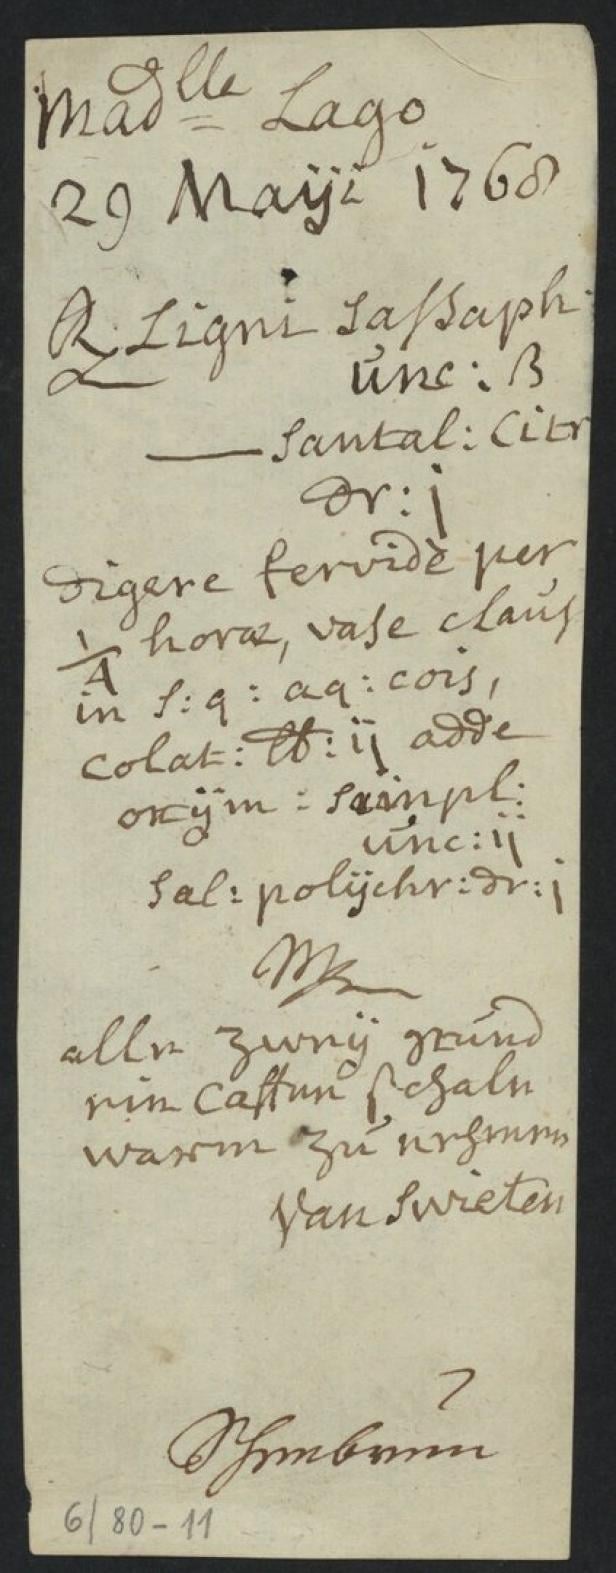 Madlle Lago
29 Maÿi 1768
℞ Ligni sassaph:
unc: ß
— santal: Citr
dr: j
digere fervide per
1/4 horæ, vase claus
in s: q: aq: cois,
colat: ℔: ij adde
oxÿm: simpl:
unc: ij
sal: polÿchr: dr: j
M
alle zweÿ stund
ein Caffeu schale
warm zu nehmen
Van Swieten
Schenbrun
6/80-11